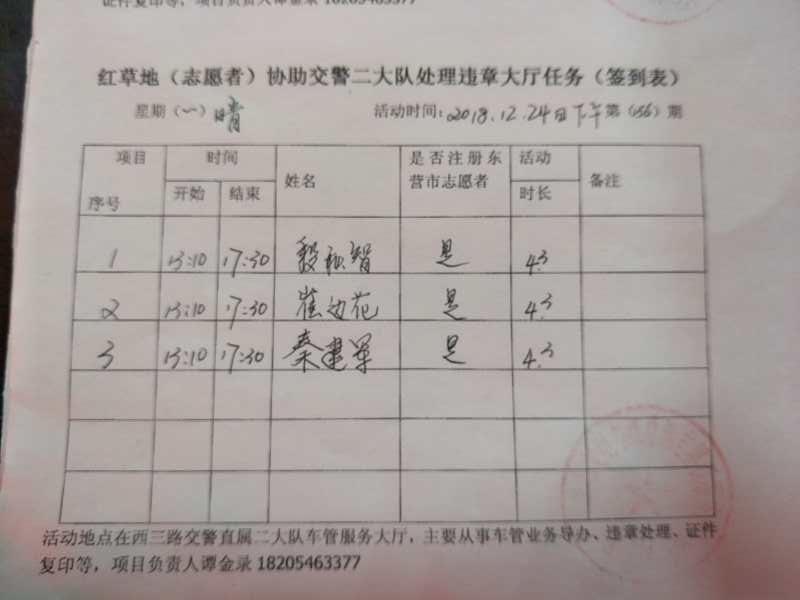 证件复印等，项目负责人谭金录 18205463377
红草地（志愿者）协助交警二大队处理违章大厅任务（签到表）
星期（一）晴 活动时间：2018.12.24日下午 第（156）期
项目 时间 姓名 是否注册东营市志愿者 活动时长 备注
序号 开始 结束
1 13:10 17:30 是 4.3
2 13:10 17:30 崔 花 是 4.3
3 13:10 17:30 秦建军 是 4.3
活动地点在西三路交警直属二大队车管服务大厅，主要从事车管业务导办、违章处理、证件
复印等，项目负责人谭金录 18205463377